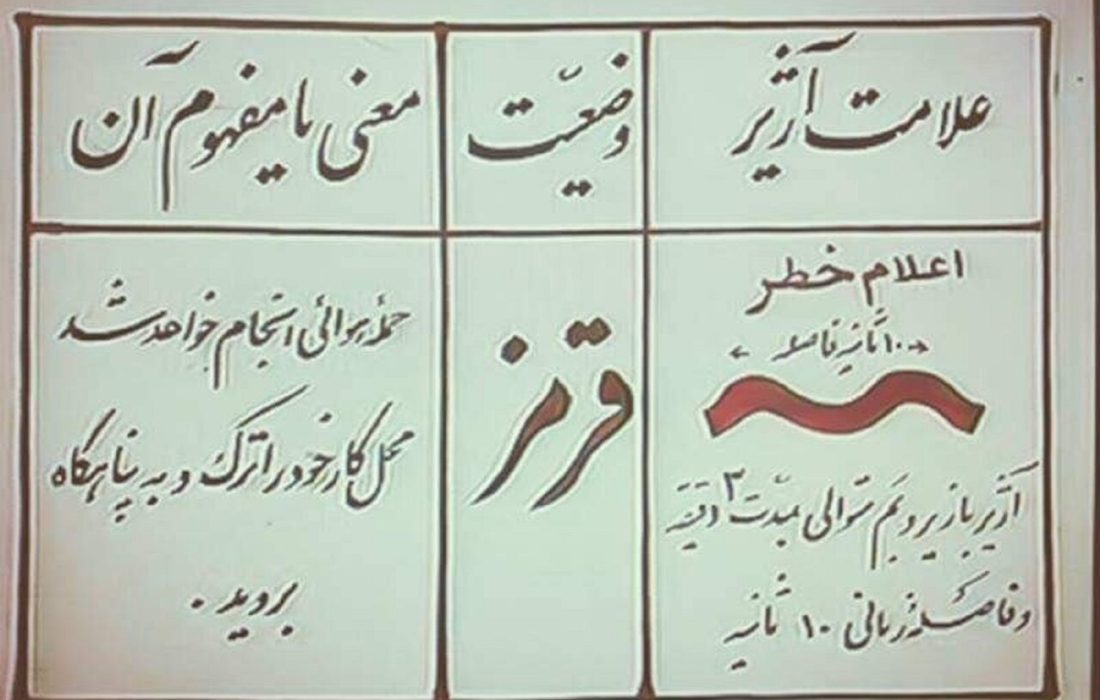 علامت آژیر
وضعیّت
معنی یا مفهوم آن
اعلام خطر
۱۰ ثانیه فاصله
آژیر با زیر و بم متوالی بمدّت ۳ دقیقه
و فاصلهٔ زمانی ۱۰ ثانیه
قرمز
حملهٔ هوائی انجام خواهد شد
محل کار خود را ترک و به پناهگاه
بروید.